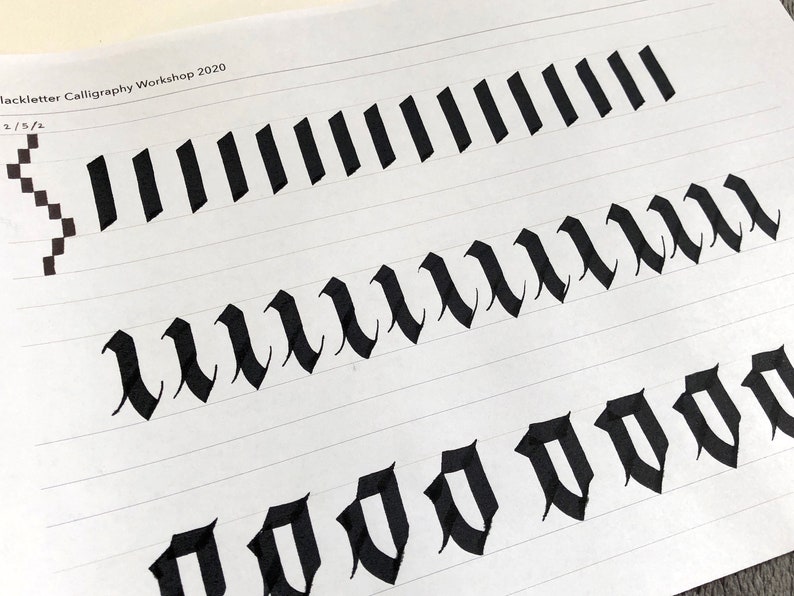 lackletter Calligraphy Workshop 2020
2/5/2
o o o o o o o o